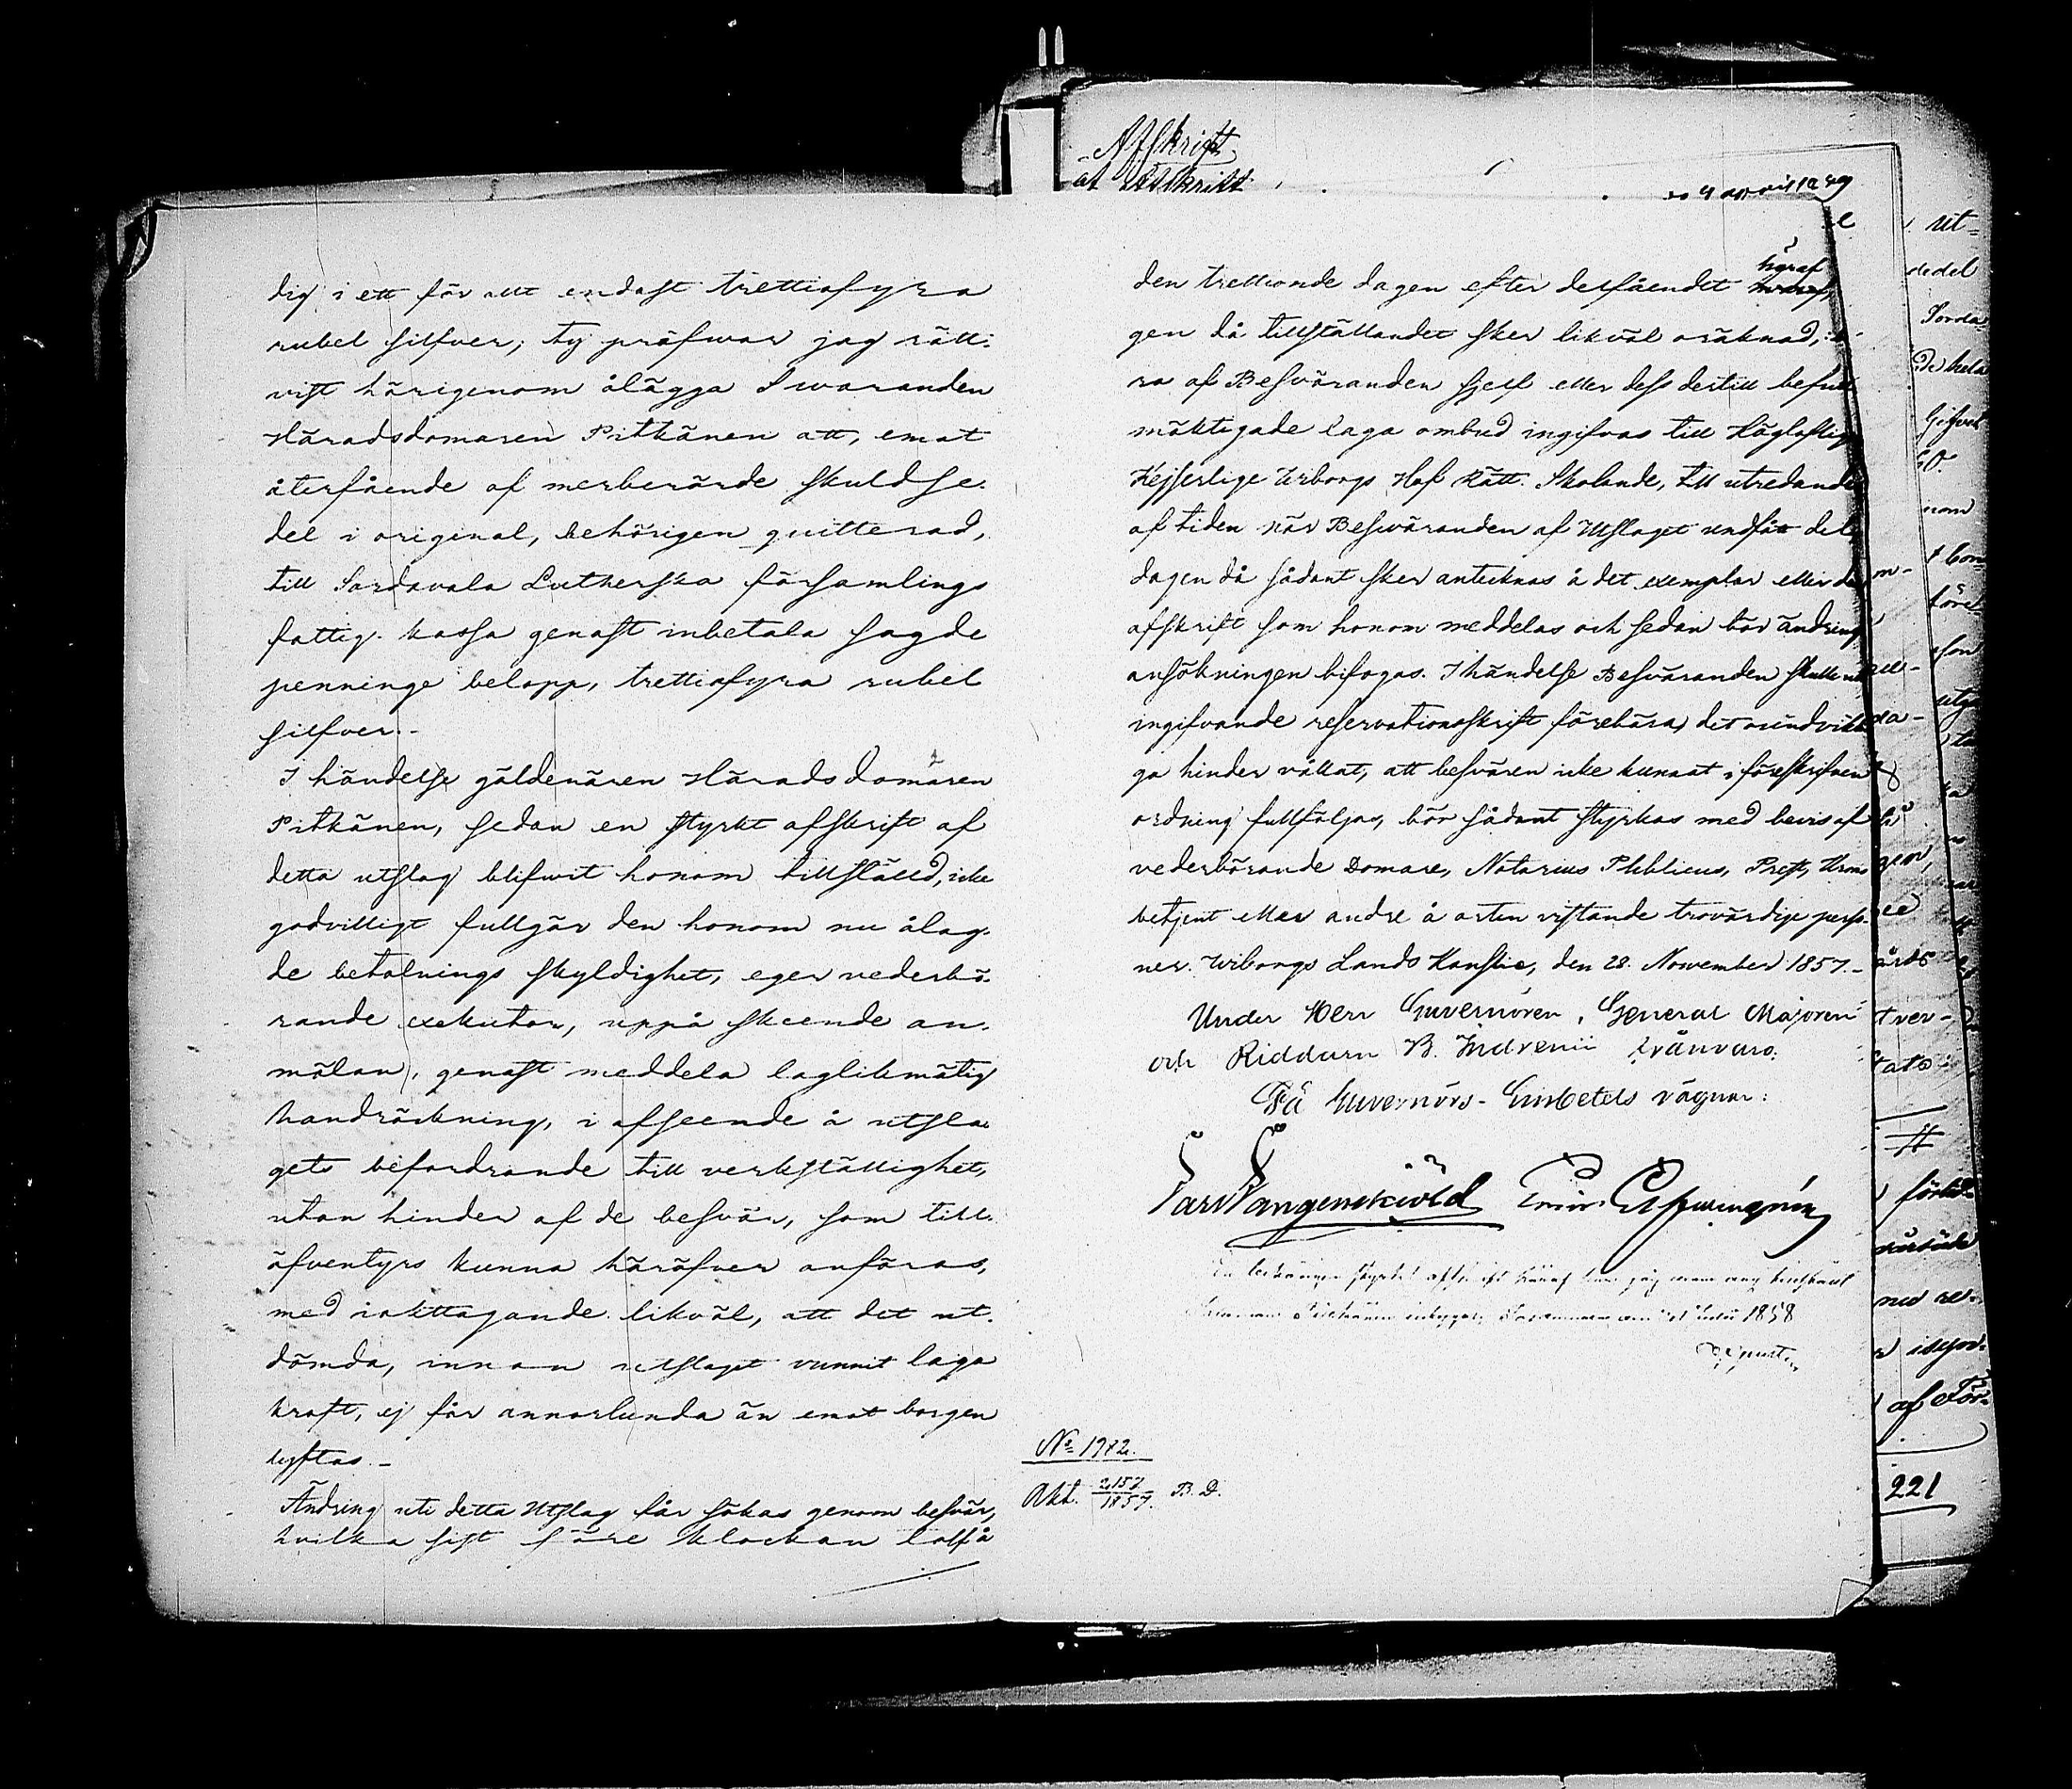 dig i ett för allt endast trettiofyra
rubel silfver; ty pröfwar jag rätt-
vist härigenom ålägga Swaranden
Häradsdomaren Pitkänen att, emot
återfående af merberörde skuldse-
del i original, behörigen quitterad,
till Sordavala Lutherska församlings
fattig-kassa genast inbetala sagde
penninge belopp, trettiofyra rubel
silfver.-
I händelse gäldenären Häradsdomaren
Pitkänen, sedan en styrkt afskrift af
detta utslag blifwit honom tillställd, icke
godvilligt fullgör den honom nu ålag-
de betalnings skyldighet, eger vederbö-
rande exekutor, uppå skeende an-
mälan, genast meddela laglikmätig
handräckning, i afseende å utsla-
gets befordrande till verkställighet,
utan hinder af de besvär, som till-
äfventyrs kunna häröfver anföras,
med iakttagande likväl, att det ut-
dömda, innan utslaget vunnit laga
kraft, ej får annorlunda än emot borgen
lyftas.-
Ändring uti detta Utslag får sökas genom besvär,
hvilka sist före klockan tolf å
Afskrift
af Utskrift
4 april 1849
den trettionde dagen efter delfåendet häraf,
gen då tillställandet sker likväl oräknad,
ra af Besväranden sjelf eller dess dertill befull
mäktigade laga ombud ingifvas till Högloflige
Kejserlige Wiborgs Hof Rätt. Skolande, till utredande
af tiden när Beswäranden af Utslaget undfått del
dagen då sådant sker antecknas å det exemplar eller den
afskrift som honom meddelas och sedan bör ändrings
ansökningen bifogas. I händelse Besväranden skulle
ingifvande reservationsskrift förebära, det oundvikli
ga hinder vållat, att besvären icke kunnat i föreskrifven
ordning fullföljas, bör sådant styrkas med bevis af
vederbörande Domare, Notarius Publicus, Prest, Krono
betjent eller andre å orten vistande trovärdige perso-
ner. Wiborgs Lands Kansli, den 28. November 1857.-
Under Herr Guvernören, General Majoren
och Riddaren B. Indrenii frånvaro:
På Guvernörs-Embetets vägnar:
Langenskiöld
1858
No 1982.
Akt. 2157/1857. B. D.
ut-
Sorda
221